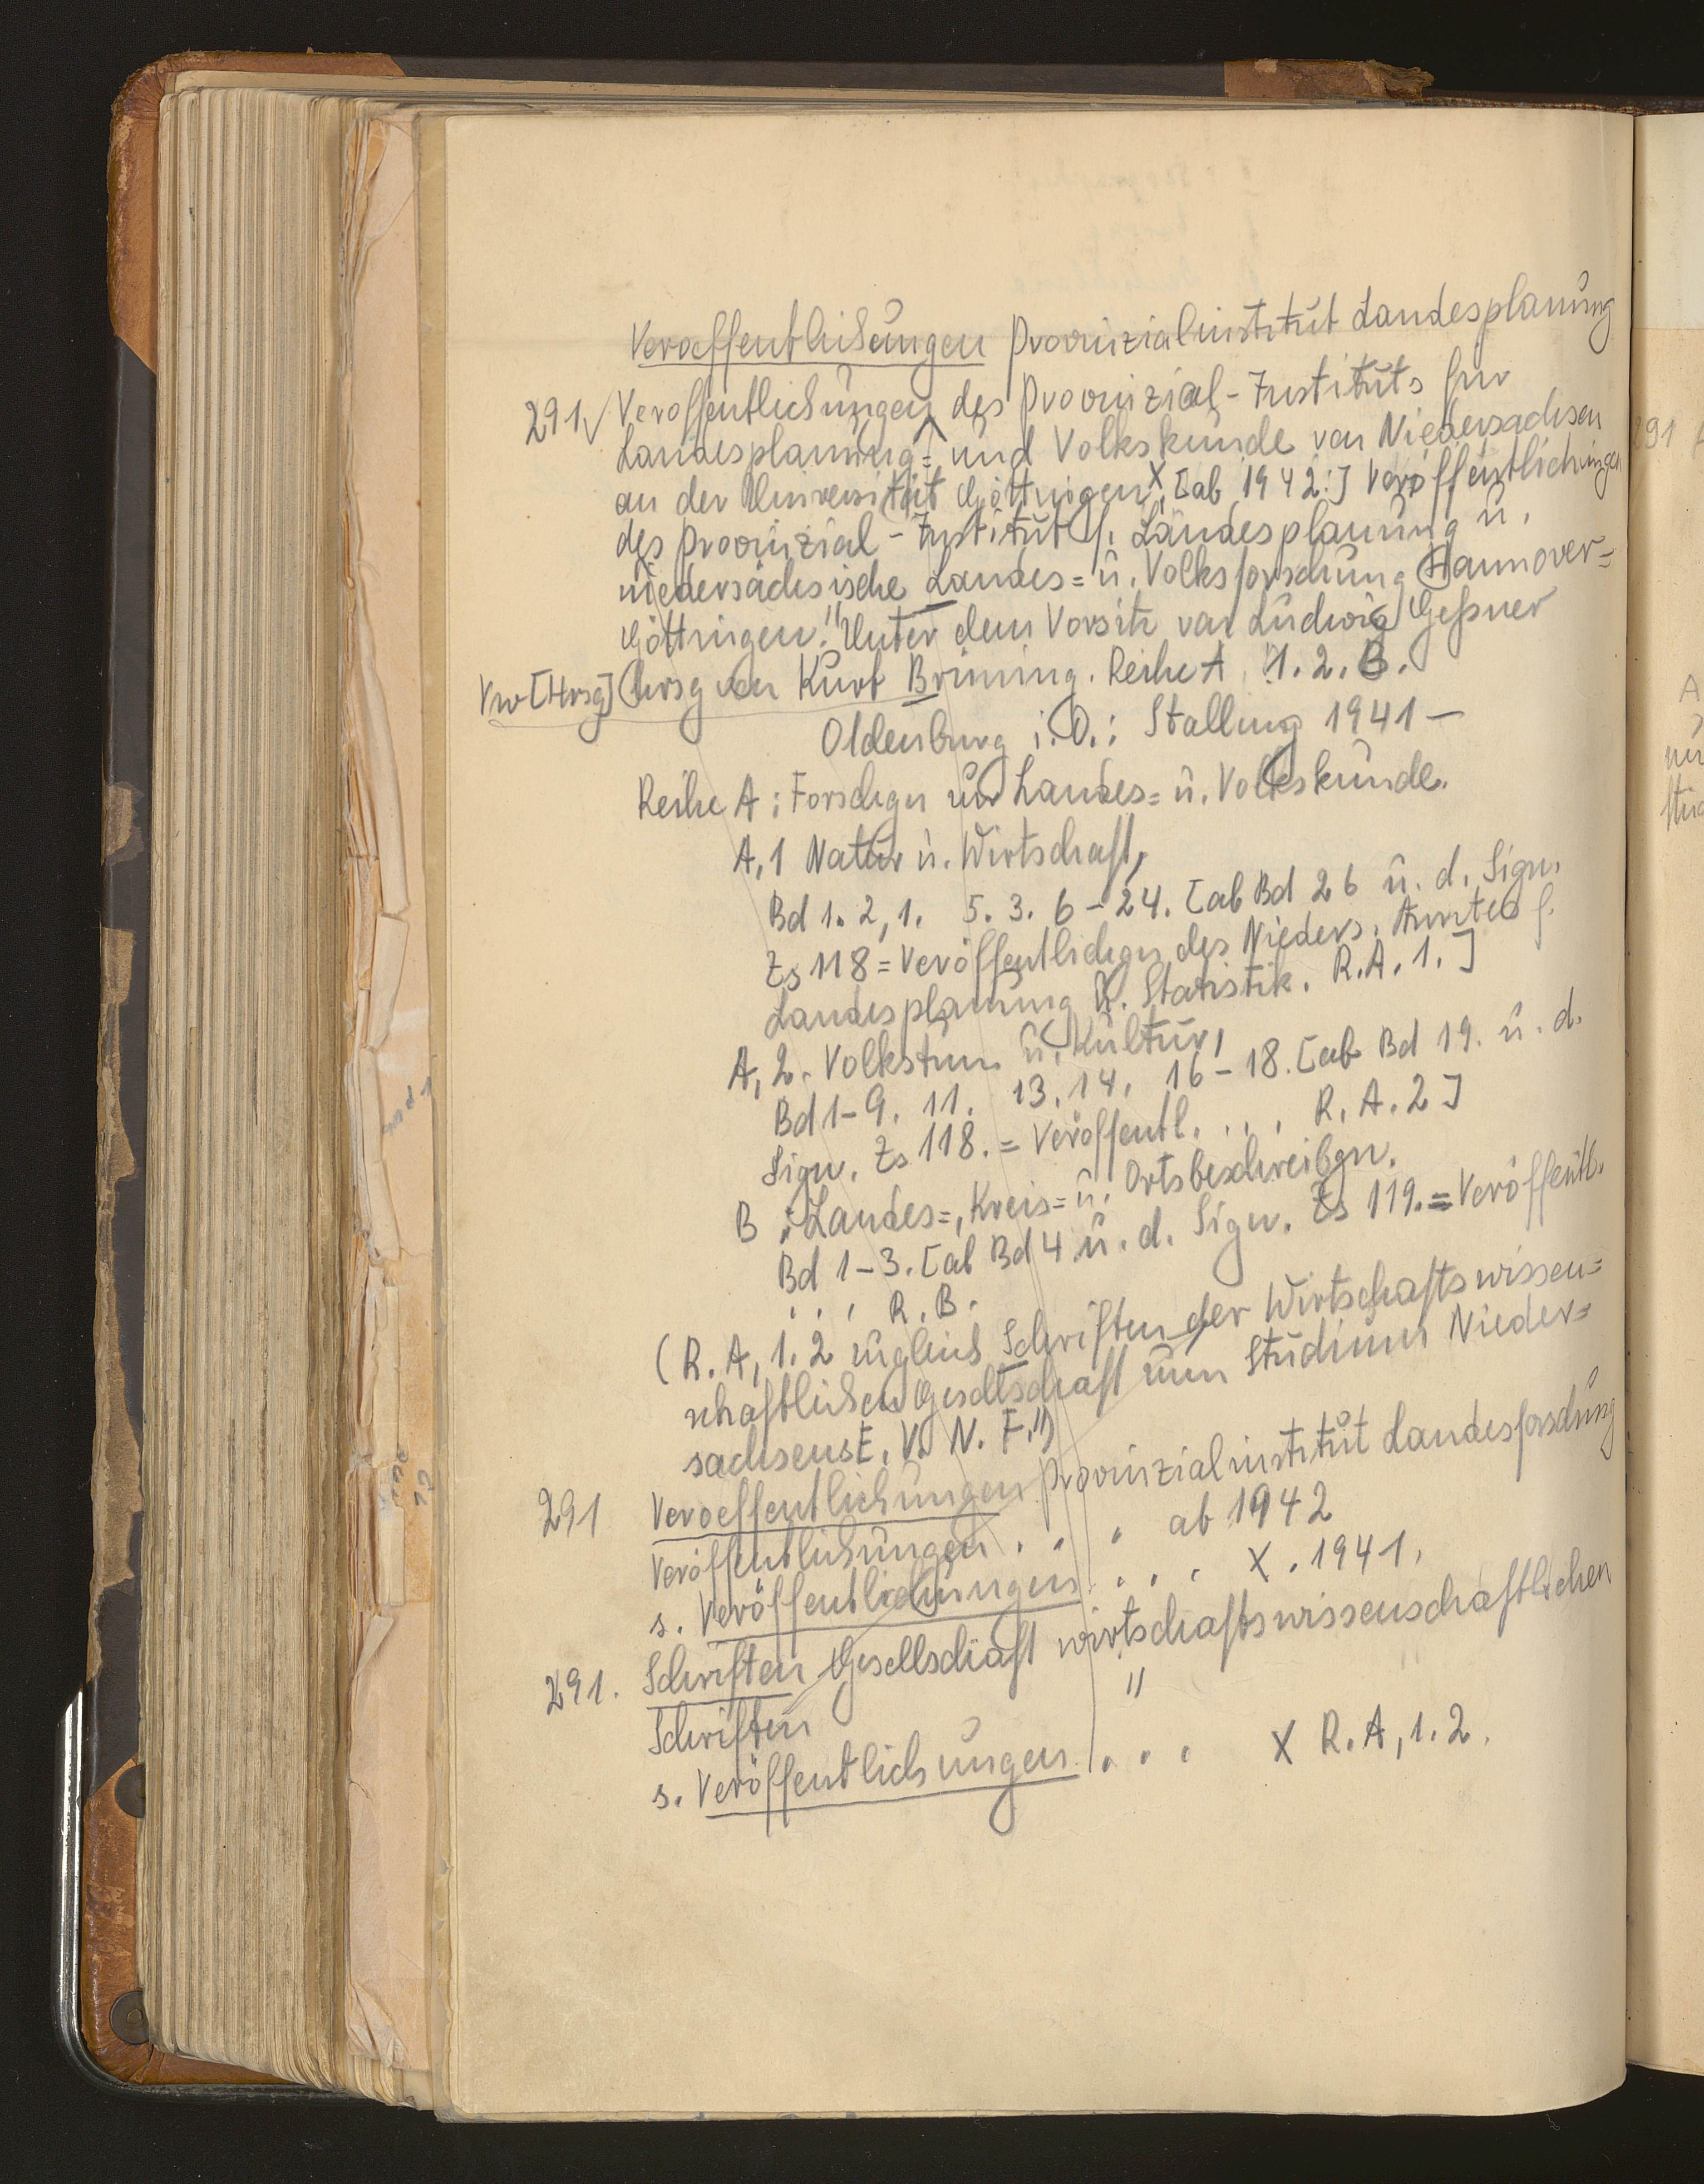 Veroeffentlichungen Provinzialinstitut Landesplanung
291 Veröffentlichungen des Provinzial-Instituts für
Landesplanung= und Volkskunde von Niedersachsen
an der Universität Göttingen X, [ab 1942:] Veröffentlichungen
des Provinzial-Institut f. Landesplanung u.
niedersächsische Landes= u. Volksforschung Hannover=
Göttingen." Unter dem Vorsitz von Ludwig Geßner
Vw [Hrsg] hrsg von Kurt Brüning. Reihe A, 1. 2. B.
Oldenburg i. O.: Stalling 1941 —
Reihe A: Forschgn zur Landes= u. Volkskunde.
A, 1 Natur u. Wirtschaft,
Bd 1. 2, 1. 5. 3. 6 – 24. [ab Bd 26 u. d. Sign.
Zs 118 = Veröffentlichgn des Nieders. Amtes f.
Landesplanung u. Statistik. R. A. 1. ]
A, 2. Volkstum u. Kultur,
Bd 1–9. 11. 13. 14. 16–18. [ab Bd 19. u. d.
Sign. Zs 118. = Veröffentl. . . . R. A. 2 ]
B : Landes=, Kreis= u. Ortsbeschreibgn.
Bd 1–3. [ab Bd 4 u. d. Sign. Zs 119. = Veröffentl.
. . . R. B.
( R. A, 1. 2 zugleich Schriften der Wirtschaftswissen=
schaftlichen Gesellschaft zum Studium Nieder=
sachsens E. V. N. F.")
291 Veroeffentlichungen Provinzialinstitut Landesforschung
Veröffentlichungen . . . ab 1942
s. Veröffentlichungen . . . X. 1941.
291. Schriften Gesellschaft wirtschaftswissenschaftlichen
Schriften "
s. Veröffentlichungen . . . X R. A, 1. 2.
291
A